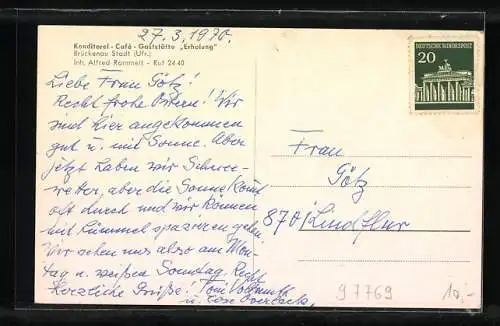 27.3.1970.
Konditorei - Café - Gaststätte „Erholung"
Brückenau Stadt (Ufr.)
Inh. Alfred Rammelt - Ruf 24 40
DEUTSCHE BUNDESPOST
20
Liebe Frau Götz!
Recht frohe Ostern! Wir
sind hier angekommen
gut u. mit Sonne. Aber
jetzt haben wir Schnee-
wetter, aber die Sonne kommt
oft durch und wir können
mit Lümmel spazieren gehen.
Wir sehen uns also am Mon-
tag n. weißen Sonntag. Recht
herzliche Grüße! Toni
u.
Frau
Götz
8701 Lindflur
97769
10,-